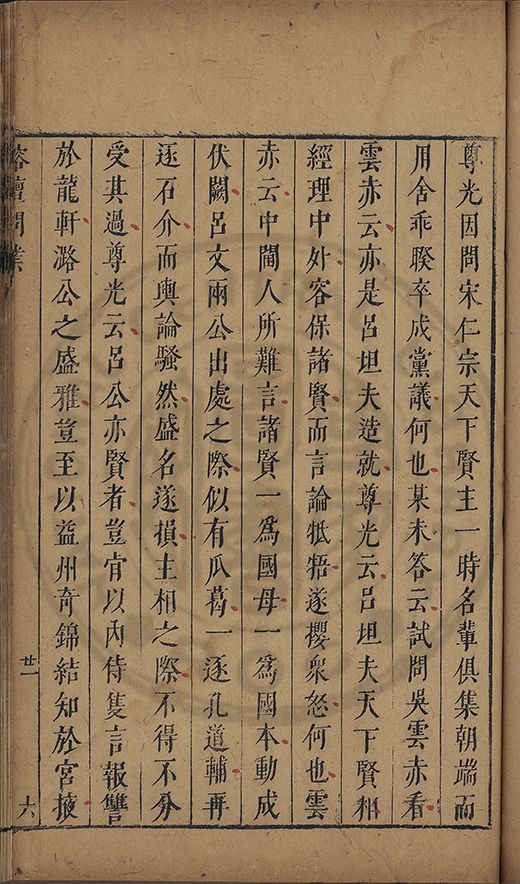 尊光因問宋仁宗天下賢主一時名輩俱集朝端而
用舍乖睽卒成黨議何也某未答云試問吳雲赤看
雲赤云亦是呂坦夫造就尊光云呂坦夫天下賢相
經理中外容保諸賢而言論牴牾遂攖衆怒何也雲
赤云中間人所難言諸賢一爲國母一爲國本動成
伏闕呂文兩公出處之際似有瓜葛一逐孔道輔再
逐石介而輿論騷然盛名遂損主相之際不得不分
受其過尊光云呂公亦賢者豈肎以內侍隻言報讐
於龍軒潞公之盛雅豈至以益州奇錦結知於宮掖
榕壇問業
廿一
六